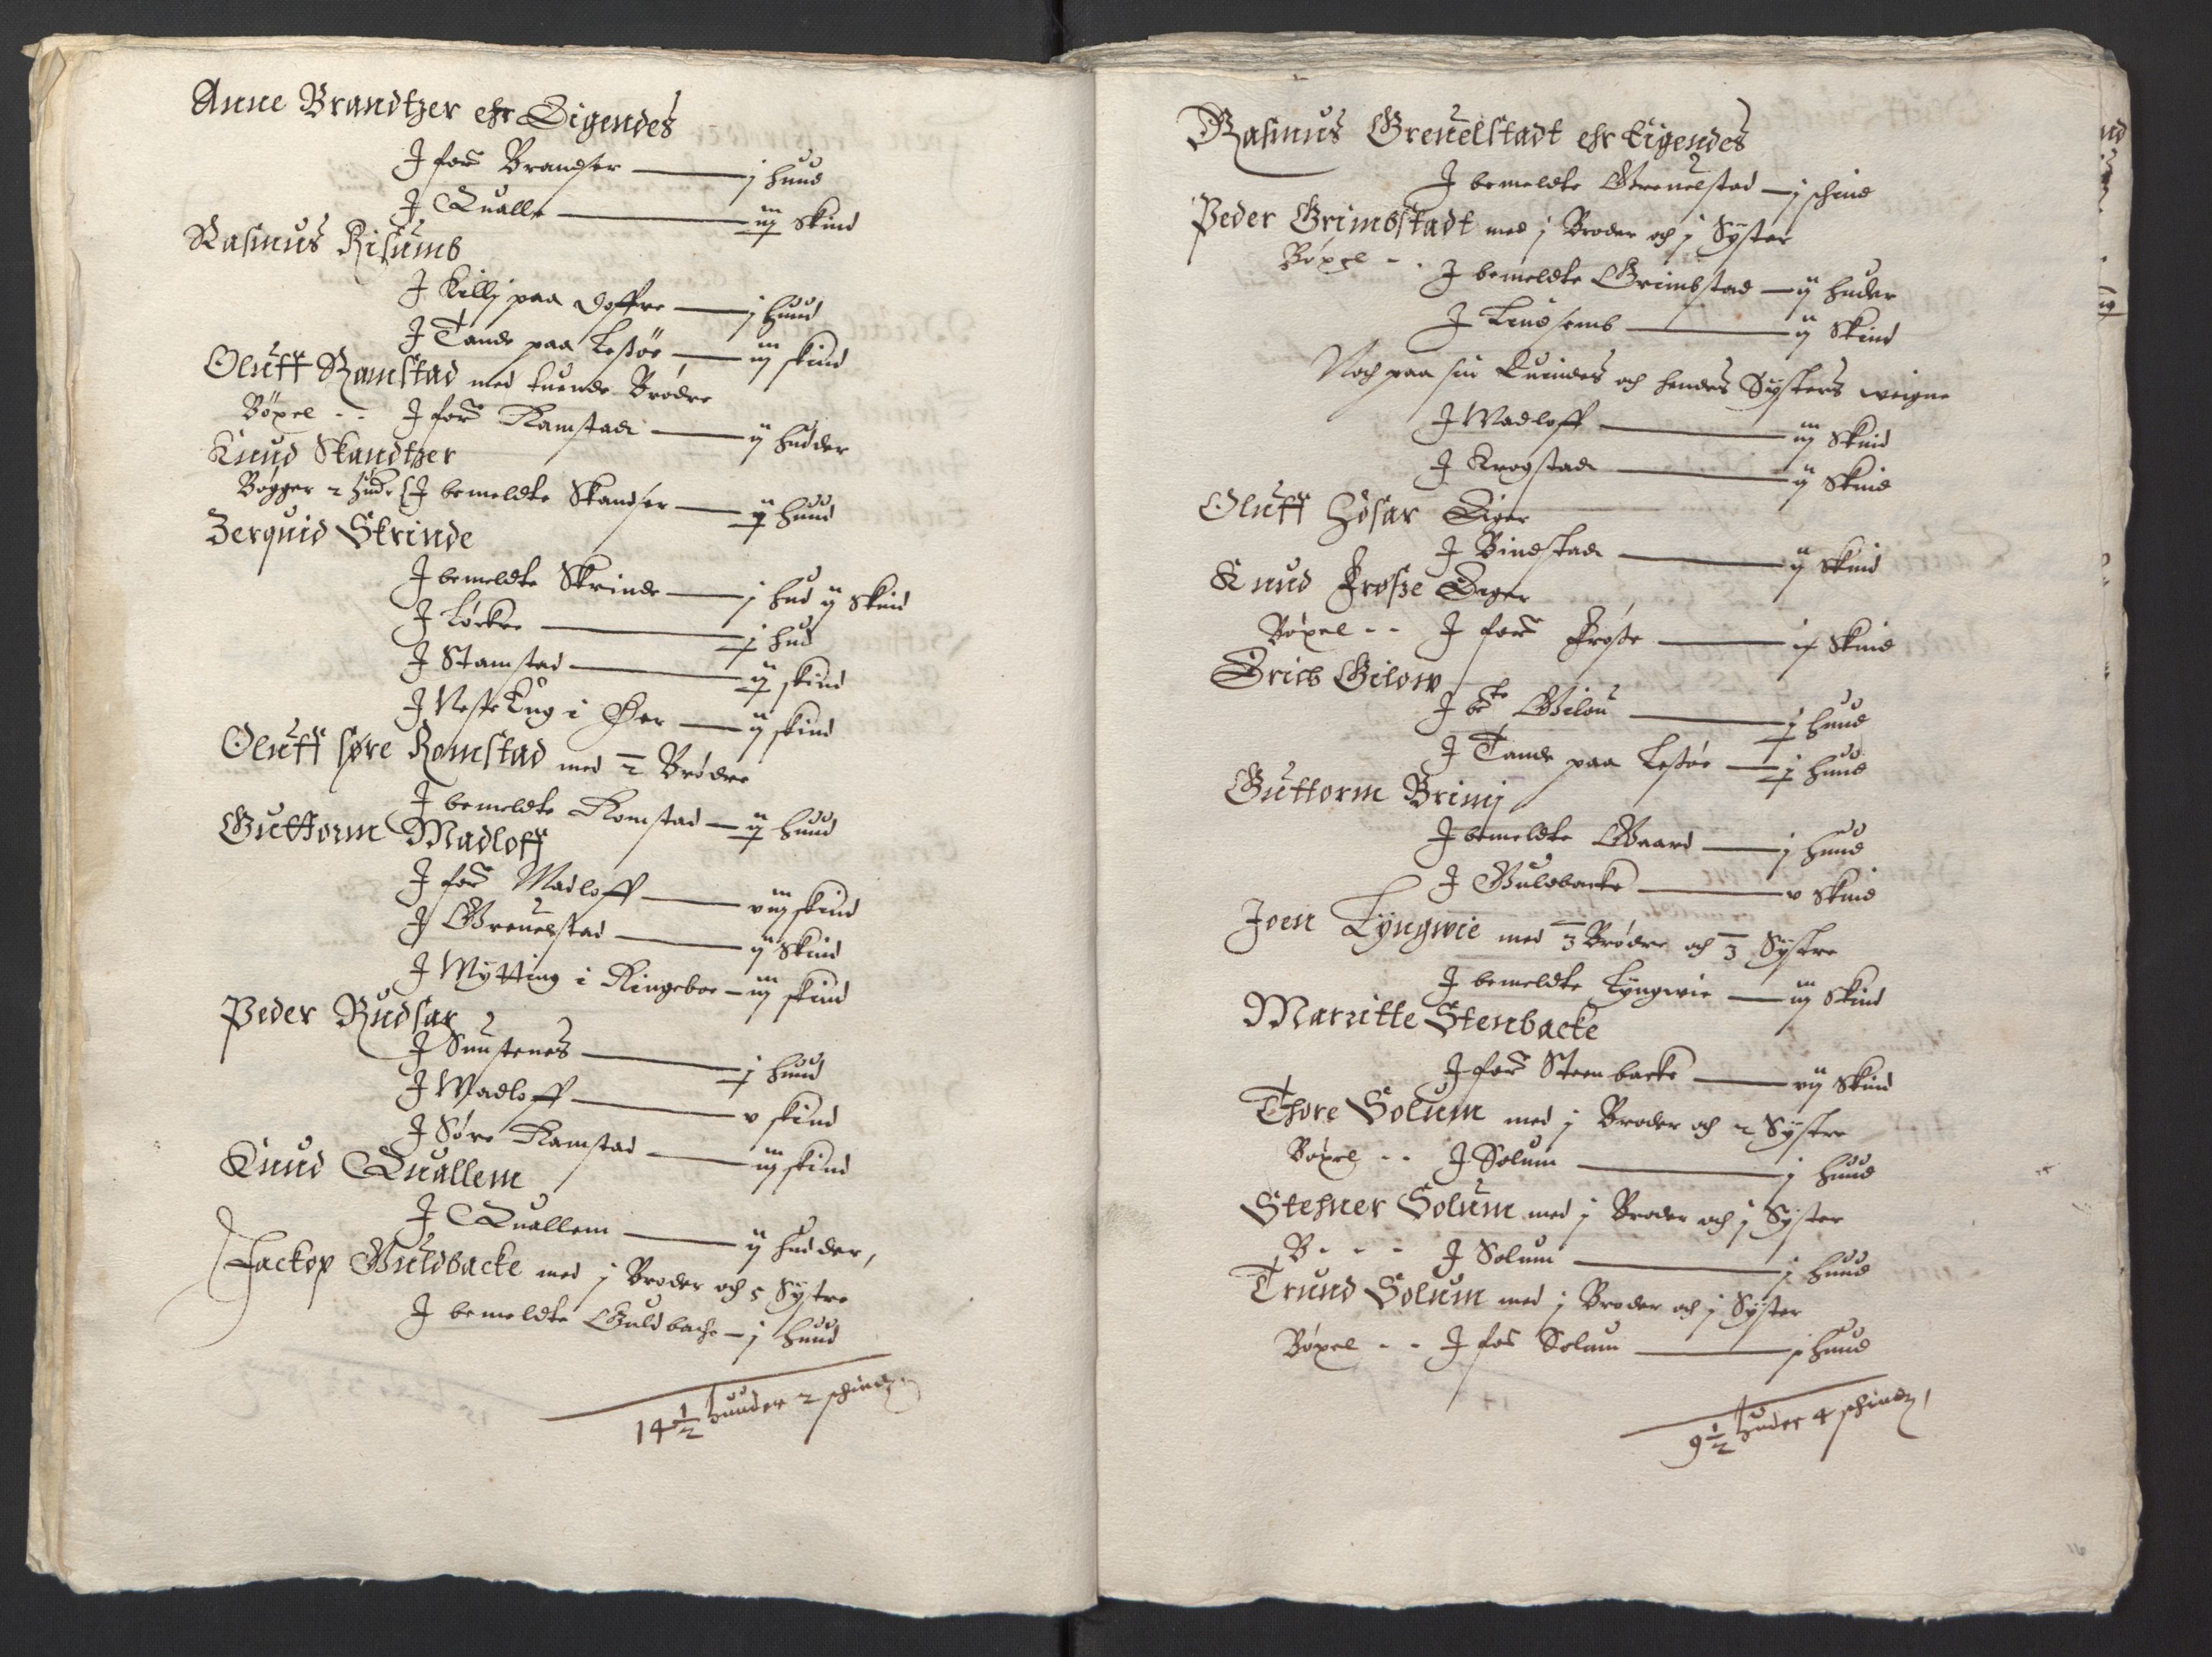 Anne Brandtzer ehr Eigendes
J for.ne Brandser — j huud
J Qualle — iij skind
Rasmus Risumb
J Killj paa Doffre — j huud
J Tande paa Lessöe — iij skind
Oluff Ramstad med tuende Brödre
Böxel - - J for.ne Ramstad — ij hudder
Knud Skandtzer
Bögger 2 hude J bemeldte Skandser — ij huud
Zerquid Skrinde
J bemeldte Skrinde — j hud ij skind
J Löckre — j hud
J Stamstad — ij skind
J Neste Kug i Öier — ij skind
Oluff söre Romstad med 2 Brödre
J bemeldte Romstad — ij huud
Guttorm Madloff
J for.ne Madloff — viij skind
J Greuelstad — ij skind
J Mytting i Ringeboe — iij skind
Peder Rudsar
J Sunstenes — j huud
J Madloff — v skind
J Söre Ramstad — iij skind
Knud Quallem
J Quallem — ij hudder,
Jackop Guldbacke med j Broder och 5 Systre
J bemeldte Guldbache — j huud
14½ huuder 2 schind
Rasmus Greuelstadt ehr Eigendes
J bemeldte Greuelstad — j schind
Peder Grimbstadt med j Broder och j Syster
Böxel - - J bemeldte Grimbstad — ij huder
J Lindsemb — ij skind
Noch paa sin Quindes och hendes Systers weigne
J Madloff — iij skind
J Krogstad — ij skind
Oluff Hösar Eiger
J Bindstad — ij skind
Knud Frosse Eiger
Böxel - - J for.ne Frosse — ix skind
Erich Gilow
J be.te Gilou — j huud
J Tande paa Lessöe — j huud
Guttorm Brimj
J bemeldte Gaard — j huud
J Guldbacke — v skind
Joen Lyngwie med 3 Brödre och 3 Systre
J bemeldte Lyngwie — iij skind
Marritte Stenbacke
J for.ne Steenbacke — vij skind
Thore Solum med j Broder och 2 Systre
Böxel - - J Solum — j huud
Stehner Solum med j Broder och j Syster
B - - - J Solum — j huud
Trund Solum med j Broder och j Syster
Böxel - - J for.ne Solum — j huud
9½ huder 4 schind